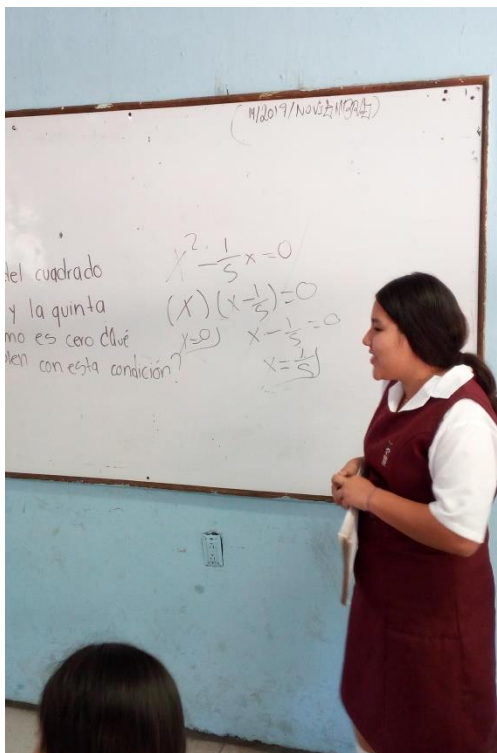 (14/2019/NOVIEMBRE)
del cuadrado
y la quinta
mo es cero ¿Qué
plen con esta condición?
x² - 1/5 x = 0
(x)(x - 1/5) = 0
x=0 x - 1/5 = 0
x = 1/5